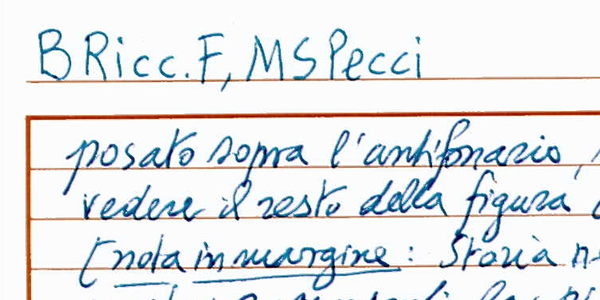 B Ricc. F, MS Pecci
posato sopra l'antifonario,
vedere il resto della figura
[nota in margine: Storia